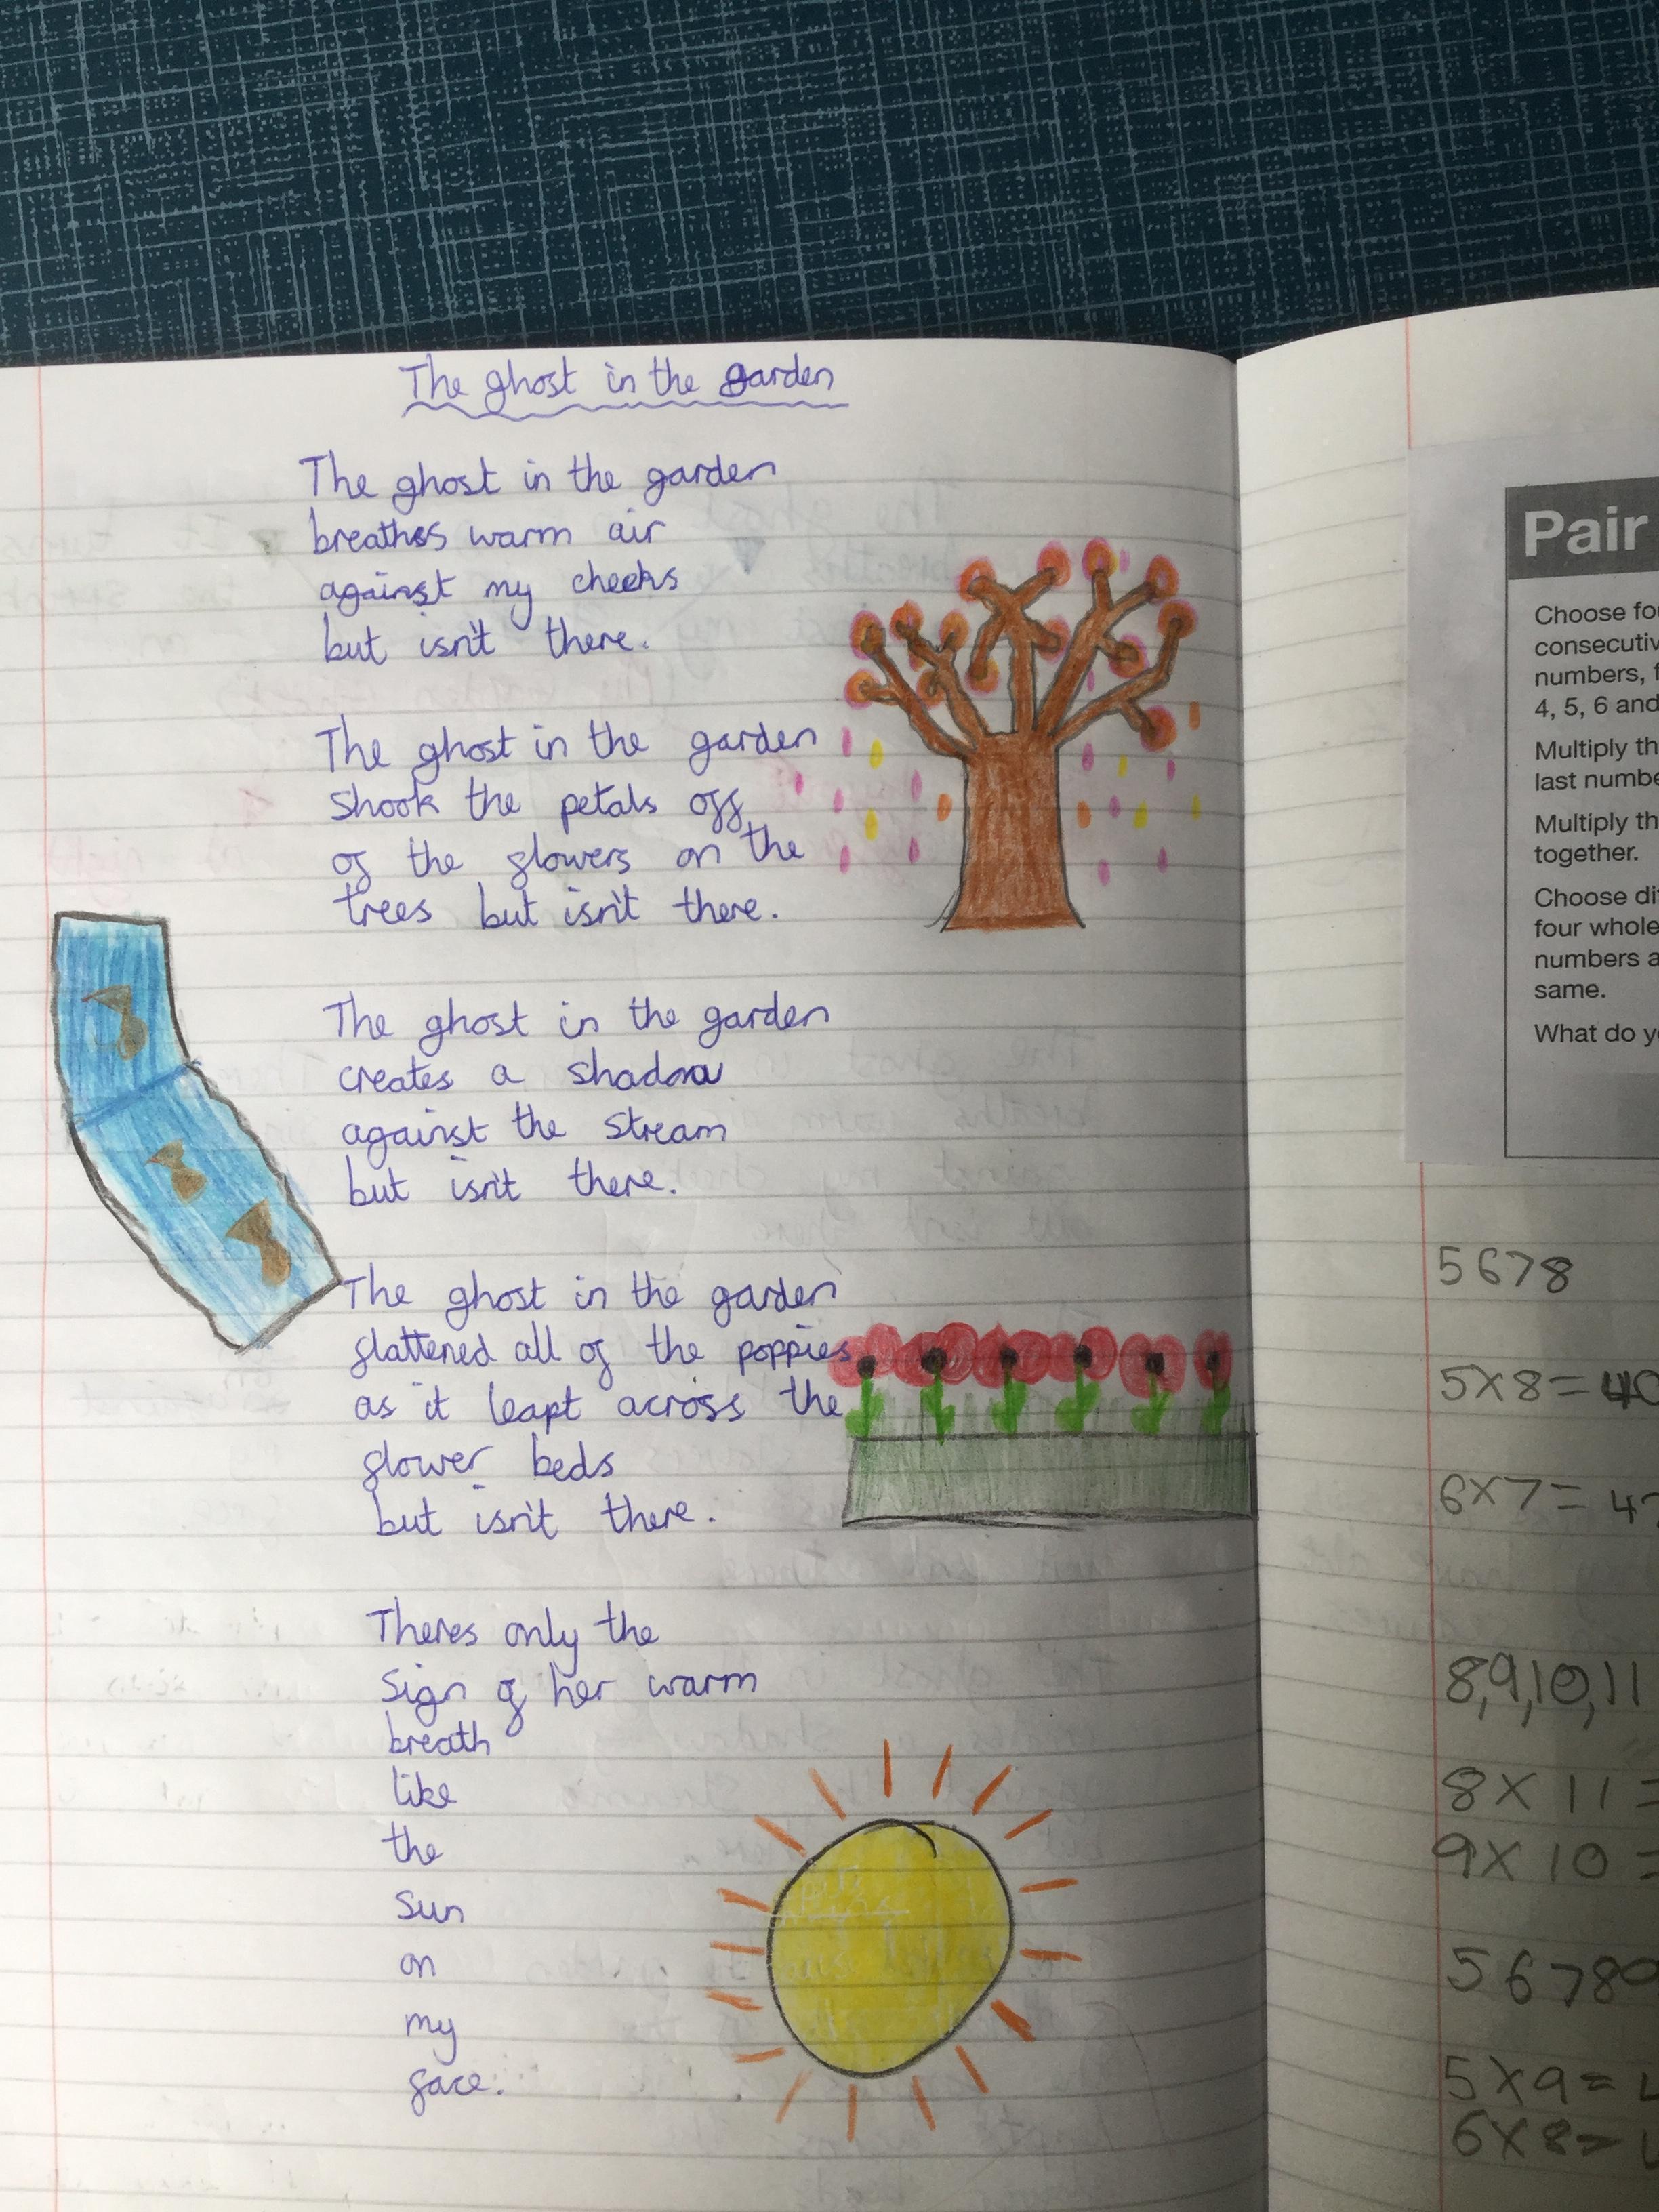 The ghost in the garden
The ghost in the garden
breathes warm air
against my cheeks
but isn't there.
The ghost in the garden
shook the petals off
of the flowers on the
trees but isn't there.
The ghost in the garden
creates a shadow
against the stream
but isn't there.
The ghost in the garden
flattened all of the poppies
as it leapt across the
flower beds
but isn't there.
Theres only the
sign of her warm
breath
like
the
sun
on
my
face.
Pair
Choose
consecutiv
numbers,
4, 5, 6 and
Multiply
last
Multiply
together.
Choose
four whole
numbers
same.
What do
5678
5x8=40
6x7=4
8,9,10,11
8x11=
9x10=
5678
5x9=
6x8=